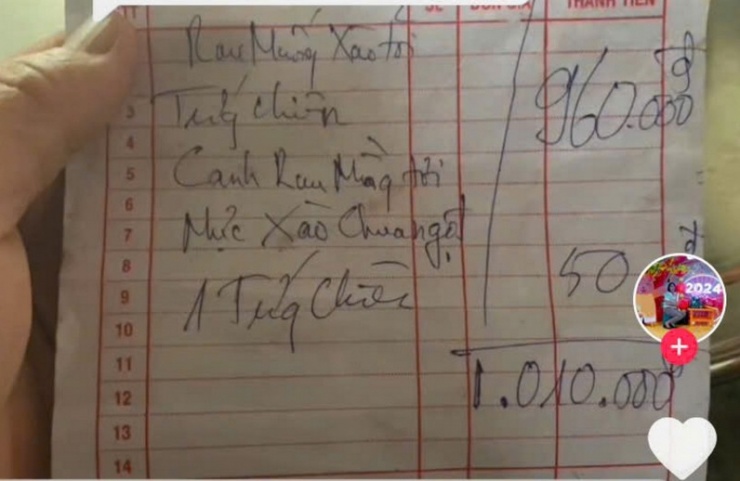 TT SL ĐƠN GIÁ THÀNH TIỀN
Rau Muống Xào tỏi
đ
3 Trứng chiên 960.000
4
5 Canh Rau
6
7 Mực Xào Chua ngọt
đ
8 50
9 1 Trứng Chiên
2024
10
11
12 1.010.000đ
13
14